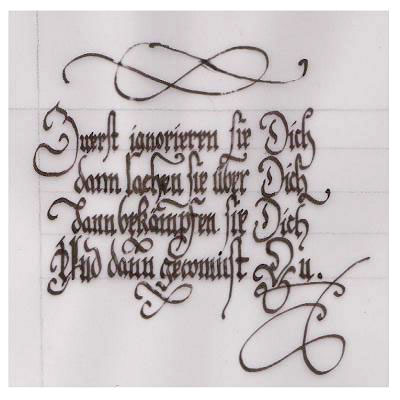 Zuerst ignorieren sie Dich
dann lachen sie über Dich
dann bekämpfen sie Dich
Und dann gewinnst Du.